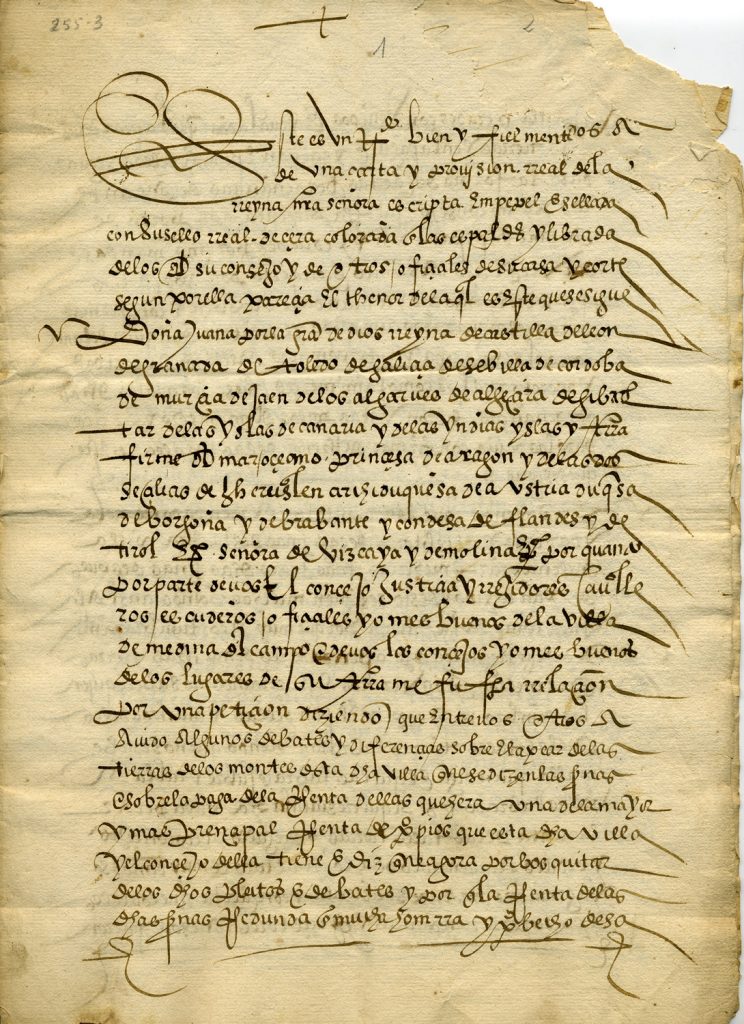 255-3
1
2
Este es un trº bien y fielmente os A
de una carta y provision rreal dela
rreyna nra señora escripta Enpapel E sellada
con Su sello rreal de cera colorada En las espaldas y librada
delos del su consejo y de otros oficiales desu casa y corte
segun por ella parecia El thenor dela ql es Este que se sigue
Doña Juana por la gra de dios rreyna de castilla de leon
de granada de toledo de galizia de sebilla de cordoba
de murcia de jaen delos algarves de algezira de gibal
tar delas yslas de canaria y delas yndias yslas y trra
firme del mar oceano princesa de aragon y delas dos
secilias de Jherusalen archiduquesa de austria duqsa
de borgoña y de brabante y condesa de flandes y de
tirol Ec señora de vizcaya y de molina Ec por quanto
por parte de vos El concejo Justicia y rregidores Caualle
ros escuderos oficiales y omes buenos dela villa
de medina del campo E de vos los concejos y omes buenos
delos lugares de su trra me fue fha rrelacion
por una peticion diziendo que Entre vos otros A
Avido Algunos debates y diferencias sobre El paçer delas
tierras delos montes desta dha villa que se dizen las
E sobre la paga dela rrenta dellas que hera una dela mayor
y mas prencipal rrenta de propios que esta dha villa
y el concejo della tiene E diz que agora por vos quitar
delos dhos pleitos E debates y por que la rrenta delas
dhas rredunda En mucha honrra y probecho desa